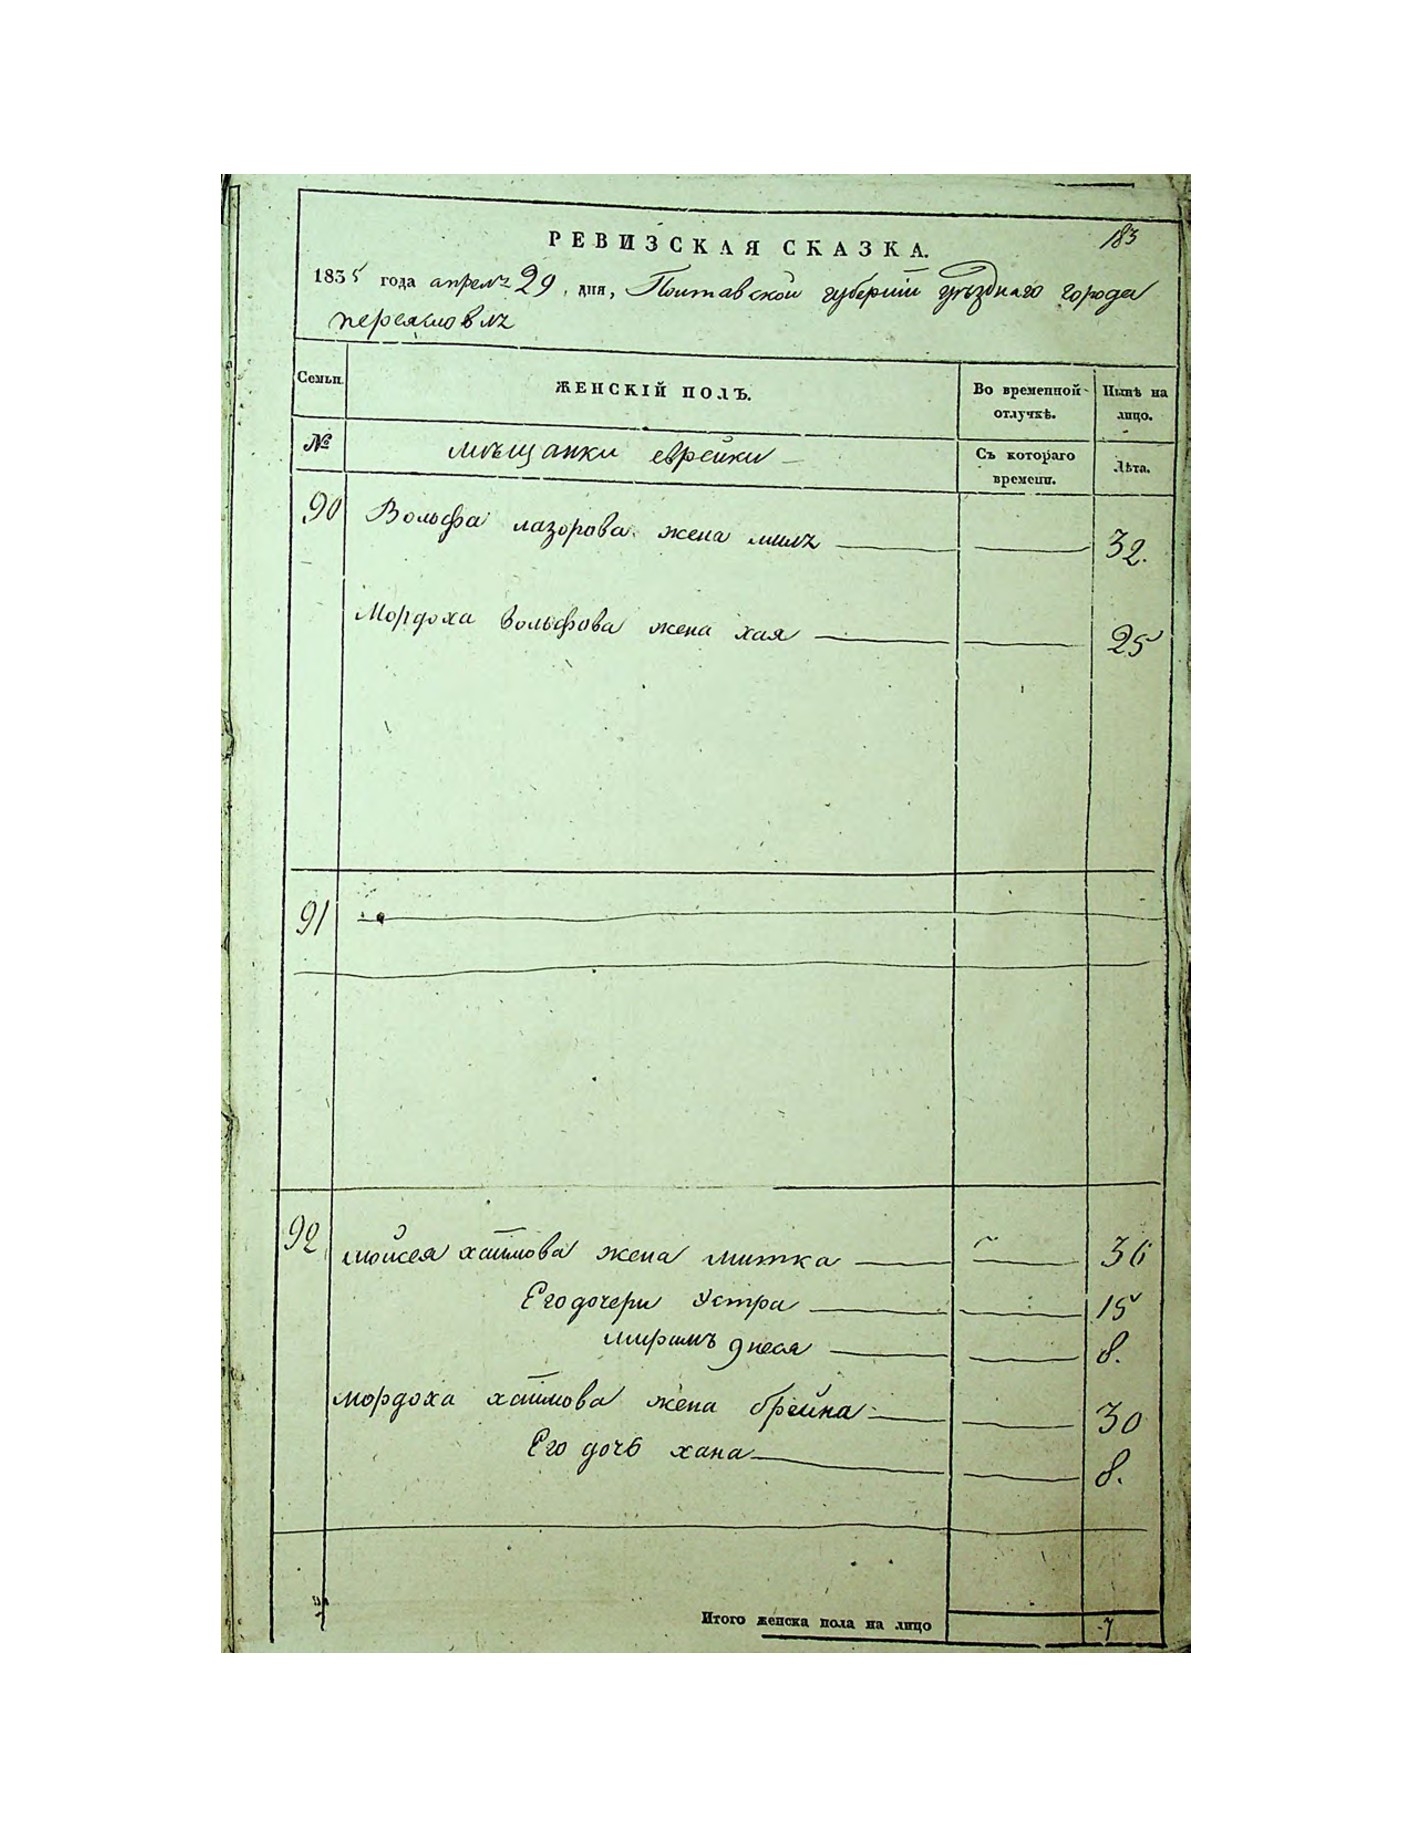 183
РЕВИЗСКАЯ СКАЗКА.
1835 года апреля 29, дня, Полтавской губернии уѣзднаго города
переяслов
Семьи. ЖЕНСКІЙ ПОЛЪ. Во временной отлучкѣ. Нынѣ на лицо.
№ мѣщанки еврейки Съ котораго времени. Лѣта.
90 Вольфа лазорова жена 32.
Мордоха вольфова жена хая 25
91
92 мойсея хаимова жена митка 36
Его дочери Устра 15
8.
мордоха хаимова жена брейна 30
Его дочь хана 8.
Итого женска пола на лицо 7